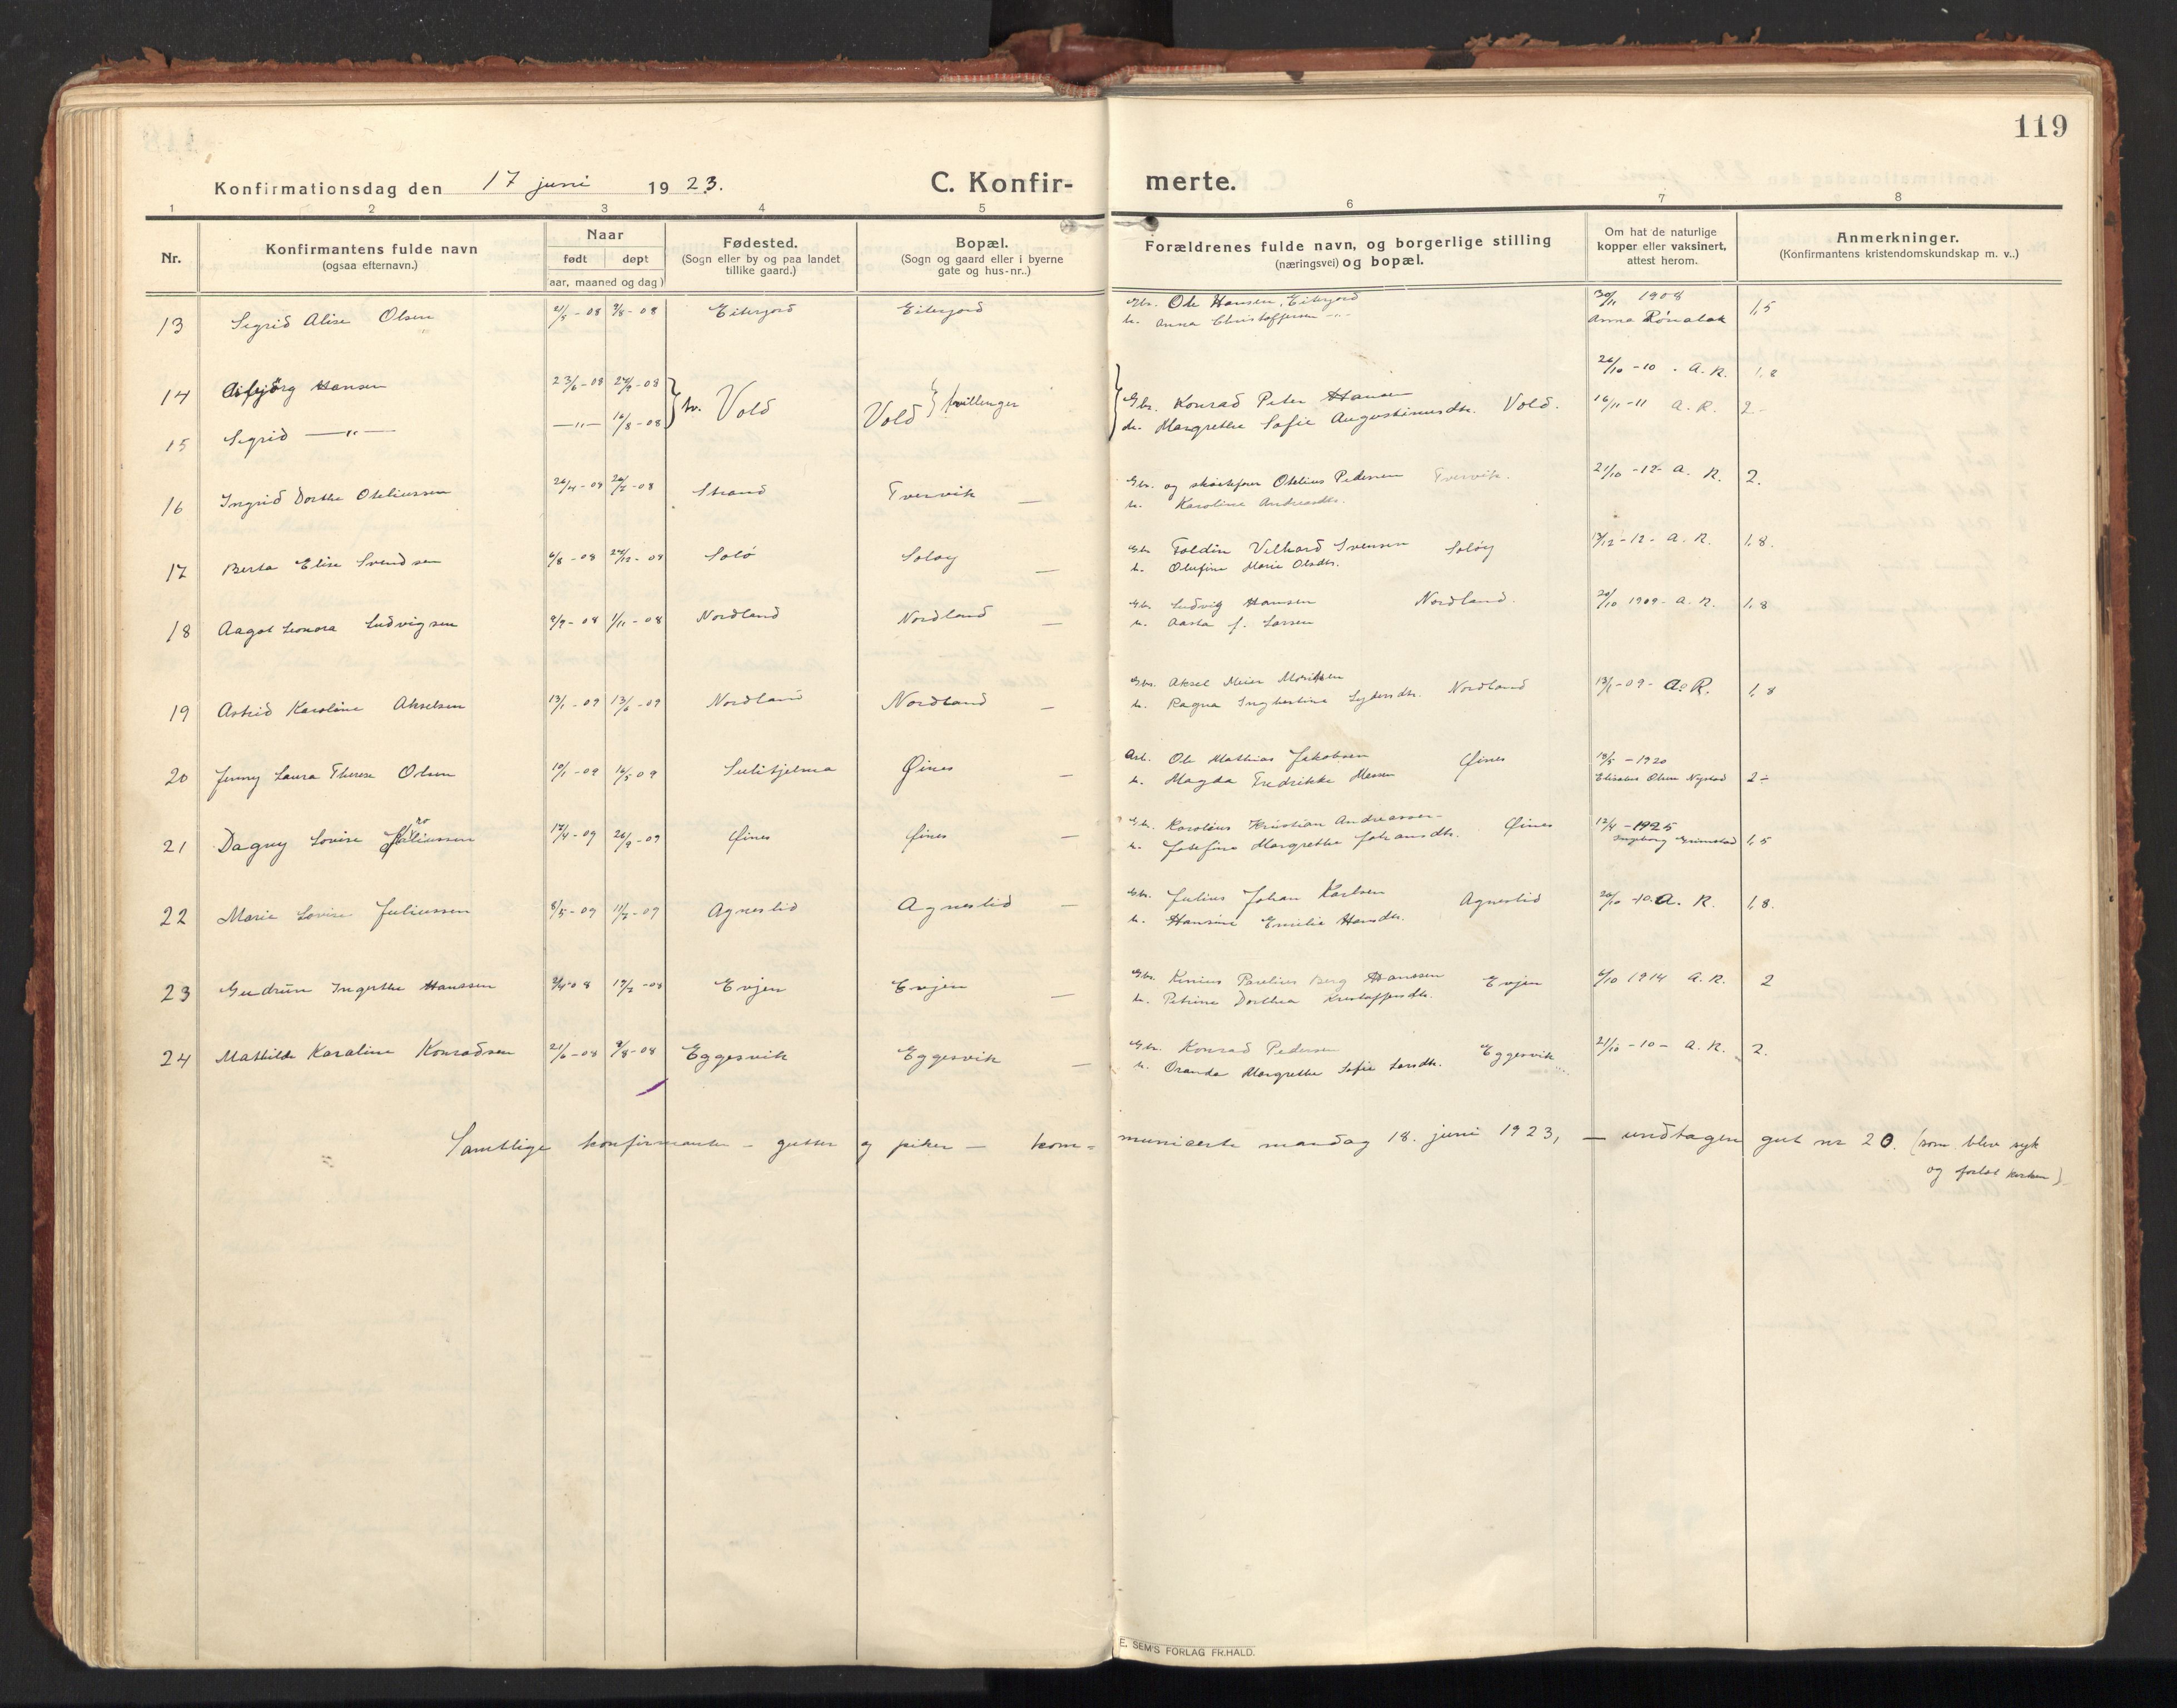 119
Konfirmationsdag den 17 juni 1923. C. Konfir- merte.
1 2 3 4 5 6 7 8
Nr. Konfirmantens fulde navn (ogsaa efternavn.) Naar født døpt aar, maaned og dag) Fødested. (Sogn eller by og paa landet tillike gaard.) Bopæl. (Sogn og gaard eller i byerne gate og hus-nr..) Forældrenes fulde navn, og borgerlige stilling (næringsvei) og bopæl. Om hat de naturlige kopper eller vaksinert, attest herom. Anmerkninger. (Konfirmantens kristendomskundskap m. v..)
13 Sigrid Alise Olsen 2/5-08 9/8-08 Eiterjord Eiterjord Gbr. Ole Hansen, Eiterjord 30/11 1908 1,5
h. Anna Christoffersen -"- Anna Rönalak
14 Asbjörg Hansen 23/6-08 27/9-08 tv. Vold Vold tvillinger Gbr. Konrad Peter Hansen Vold. 26/10-10. A. R. 1,8
15 Sigrid —"— —"— 16/8-08 h. Margrethe Sofie Augustinusdtr. 16/11-11 A. R. 2-
16 Ingrid Dorthe Oteliussen 26/4-08 26/7-08 Strand Tvervik — Gbr. og skætefører Otelius Pedersen Tvervik. 21/10-12- A. R. 2.
h. Karoline Andreasdtr.
17 Berta Elise Svendsen 6/8-08 27/12-08 Solö Solöy — Gbr Foldin Velhard Svensen Solöy 13/12-12- A. R. 1,8.
h. Olufine Marie Olsdtr.
18 Aagot Leonora Ludvigsen 8/9-08 1/11-08 Nordland Nordland — Gbr Ludvig Hansen Nordland. 20/10 1909- A. R. 1,8
h. Aasta f. Larsen
19 Astrid Karoline Akselsen 13/1-09 13/6-09 Nordland Nordland — Gbr. Aksel Meier Moritsen Nordland 13/1-09- A. R. 1,8
h. Ragna Ingbertine
20 Jenny Laura Therese Olsen 10/1-09 16/5 09 Sulitjelma Øines — Arb. Ole Mathias Jakobsen Øines 18/5-1920
h. Magda Fredrikke Elisabet Olsen Nystad 2-
21 Dagny Lovise 17/4-09 26/9-09 Øines Øines — Gbr. Karolius Kristian Andreassen Øines 12/4-1925
h. Josefine Margrethe Johansdtr. Ingeborg Grimstad 1,5
22 Marie Lovise Juliussen 8/5-09 11/7-09 Agneslid Agneslid — Gbr. Julius Johan Karlsen Agneslid 20/10-10. A. R. 1,8.
h. Hansine Emilie Hansdtr.
23 Gudrun Ingerthe Hanssen 9/4-08 19/7-08 Evjen Evjen — Gbr. Kinius Parelius Berg Hanssen Evjen 6/10 1914 A. R. 2
h. Petrine Dorthea Kristoffersdtr.
24 Mathilde Karaline Konradsen 21/6-08 9/8-08 Eggesvik Eggesvik — Gbr. Konrad Pedersen Eggesvik 21/10-10- A. R. 2.
h. Oranda Margrethe Sofie Larsdtr.
Samtlige konfirmanter – gutter og piker – kom= municerte mandag 18. juni 1923, – undtagen gut nr 20. (som blev syk
og forlot kirken)
E. SEM'S FORLAG FR.HALD.